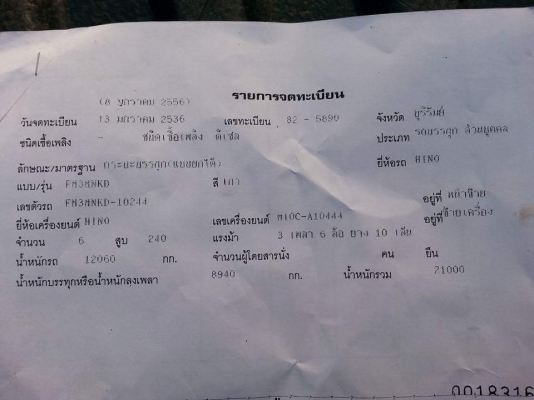 (8 มกราคม 2556) รายการจดทะเบียน
วันจดทะเบียน 13 มกราคม 2536 เลขทะเบียน 82 - 5890 จังหวัด บุรีรัมย์
ชนิดเชื้อเพลิง - ชนิดเชื้อเพลิง ดีเซล ประเภท รถบรรทุก ส่วนบุคคล
ลักษณะ/มาตรฐาน กระบะบรรทุก(แบบยกได้) ยี่ห้อรถ HINO
แบบ/รุ่น FM3MNKD สี เทา
เลขตัวรถ FM3MNKD-10244 อยู่ที่ หน้าซ้าย
ยี่ห้อเครื่องยนต์ HINO เลขเครื่องยนต์ M10C-A10444 อยู่ที่ ซ้ายเครื่อง
จำนวน 6 สูบ 240 แรงม้า 3 เพลา 6 ล้อ ยาง 10 เส้น
น้ำหนักรถ 12060 กก. จำนวนผู้โดยสารนั่ง คน ยืน
น้ำหนักบรรทุกหรือน้ำหนักลงเพลา 8940 กก. น้ำหนักรวม 21000
0018316